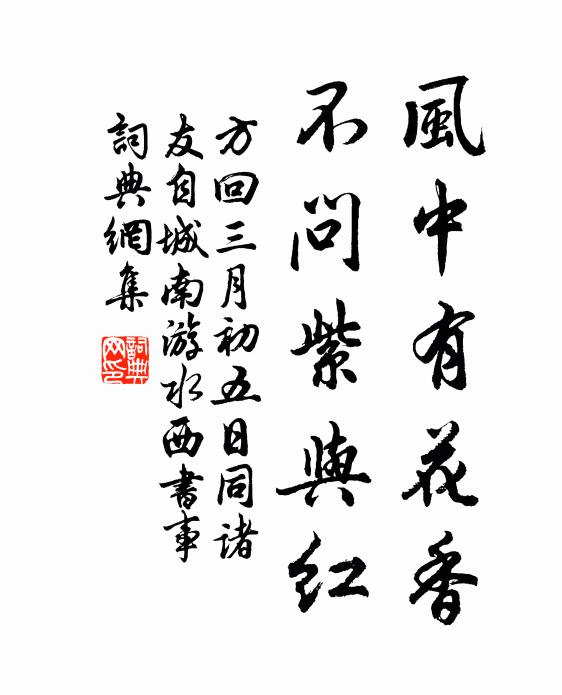 風中有花香
不問紫與紅
方回三月初五日同諸
友自城南游水西書事
詞典網集
詞典
网印